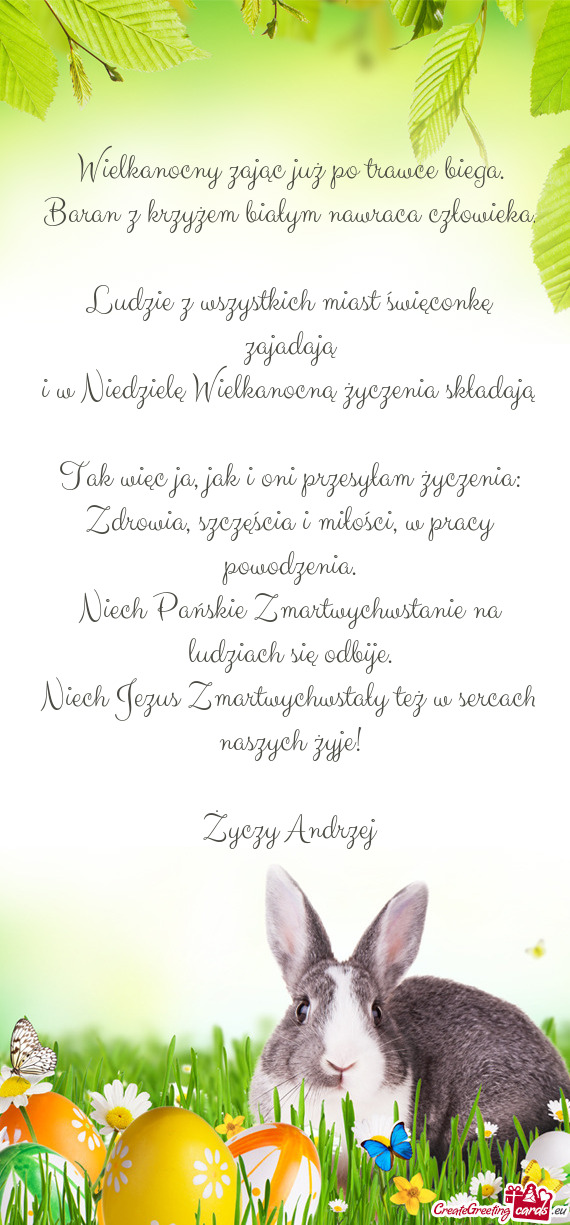 Wielkanocny zając już po trawce biega.
Baran z krzyżem białym nawraca człowieka.
Ludzie z wszystkich miast święconkę
zajadają
i w Niedzielę Wielkanocną życzenia składają
Tak więc ja, jak i oni przesyłam życzenia:
Zdrowia, szczęścia i miłości, w pracy
powodzenia.
Niech Pańskie Zmartwychwstanie na
ludziach się odbije.
Niech Jezus Zmartwychwstały też w sercach
naszych żyje!
Życzy Andrzej
CreateGreeting cards.eu